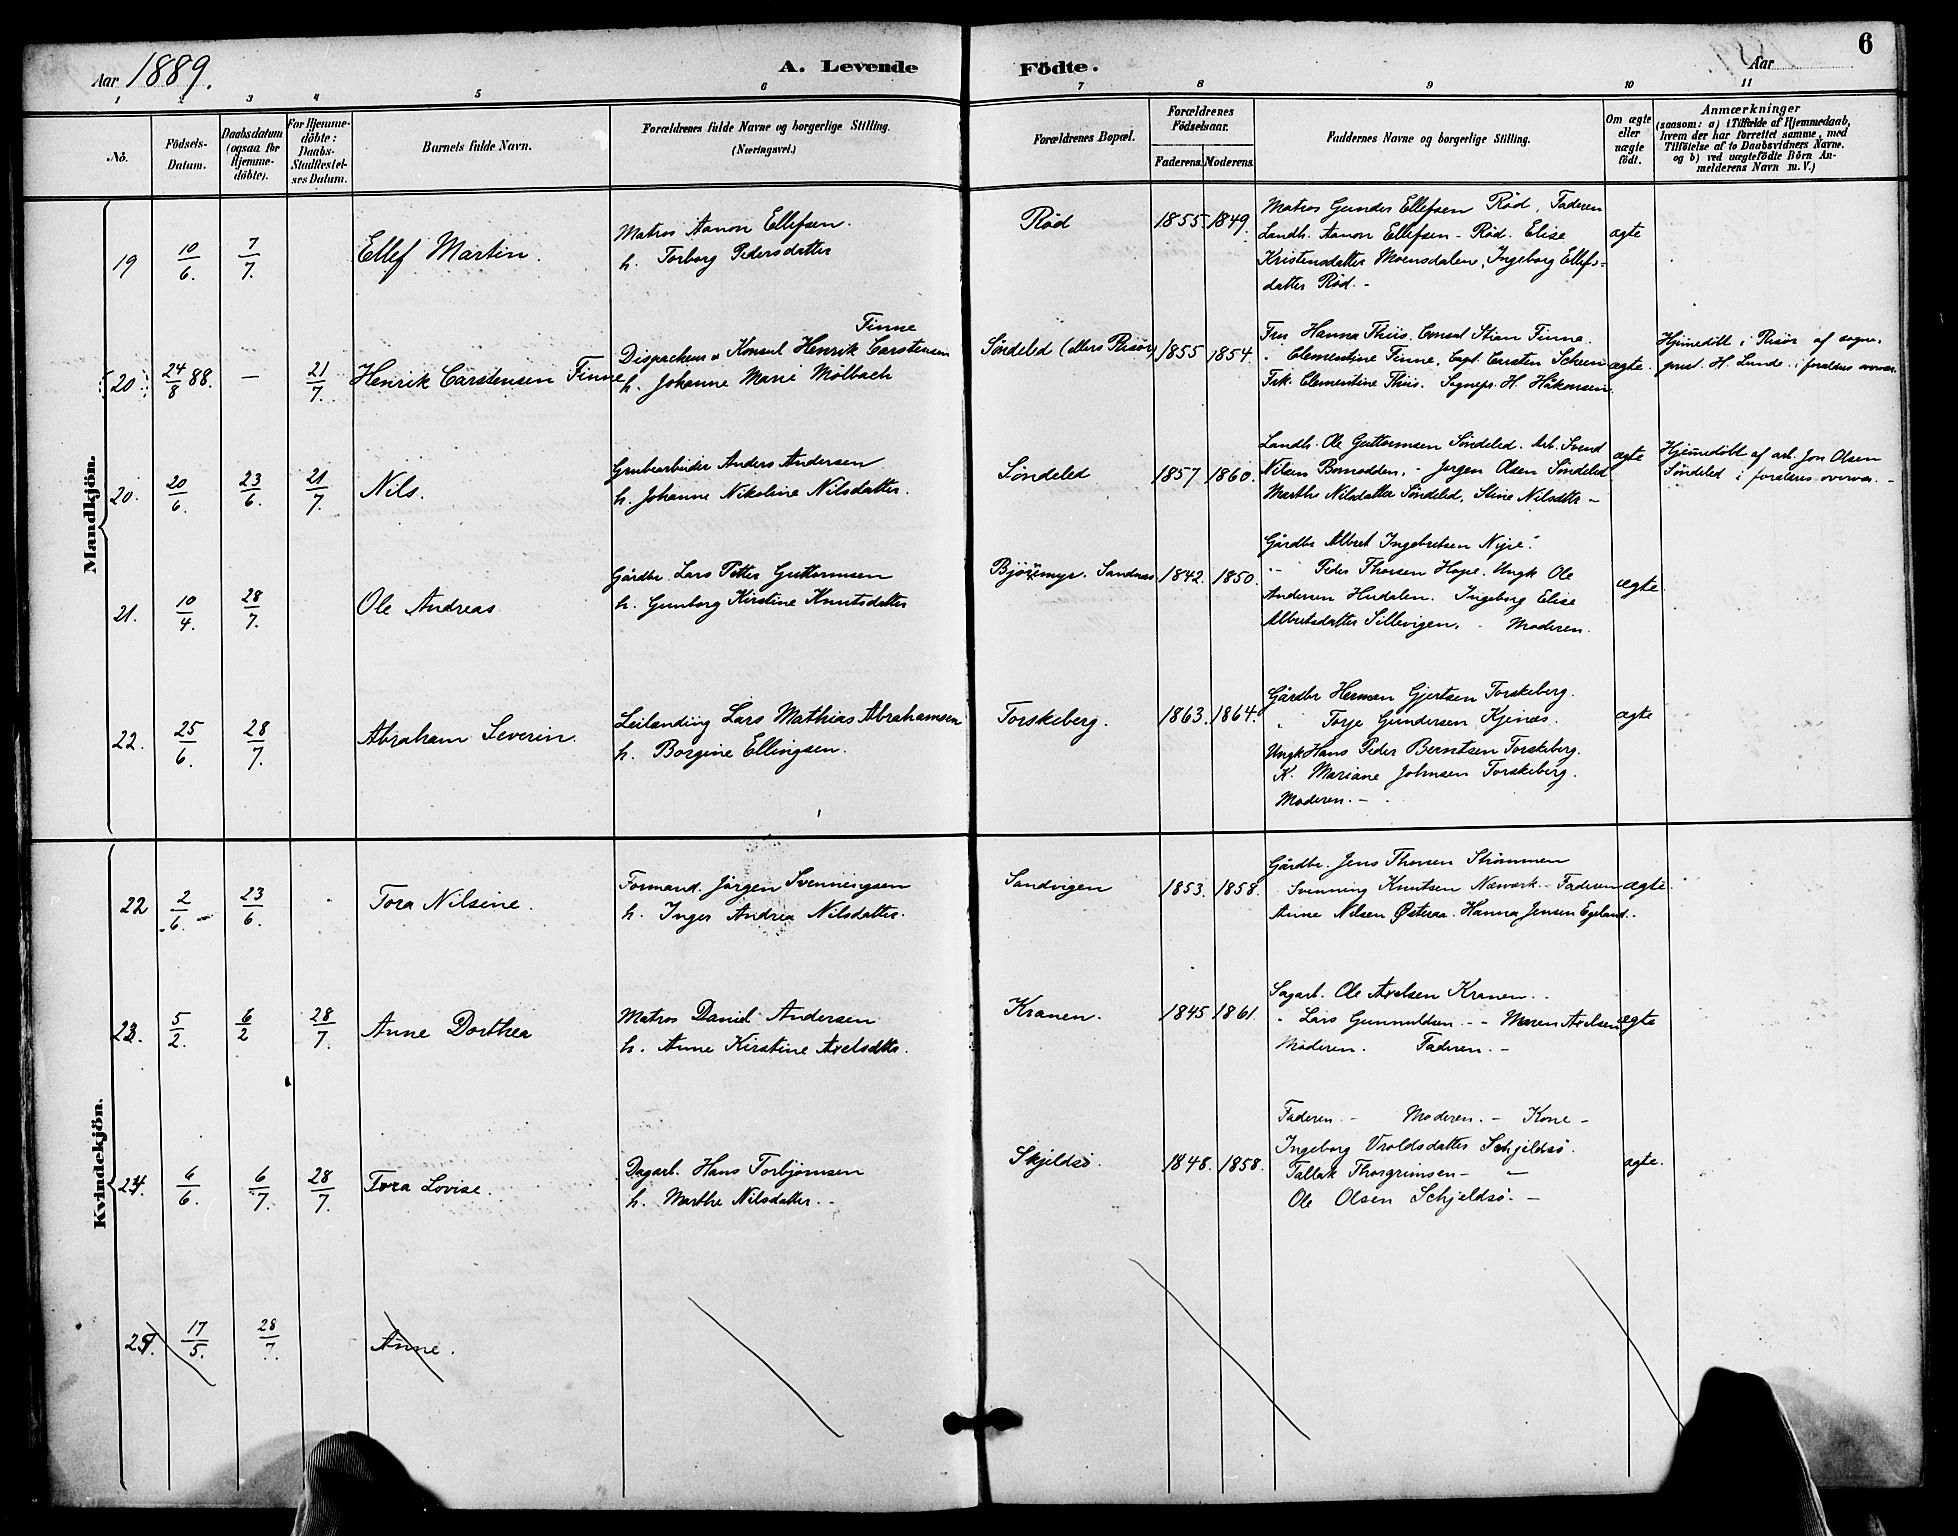 Aar 1889.
A. Levende Födte.
Aar
6
1 2 3 4 5 6 7 8 9 10 11
No.
Födsels-Datum.
Daabsdatum (ogsaa for Hjemme-döbte).
For Hjemme-döbte: Daabs-Stadfestel-ses Datum.
Barnets fulde Navn.
Forældrenes fulde Navne og borgerlige Stilling.
(Næringsvei.)
Forældrenes Bopæl.
Forældrenes Födselsaar.
Faderens. Moderens.
Faddernes Navne og borgerlige Stilling.
Om ægte eller uægte født.
Anmærkninger
(saasom: a) i Tilfælde af Hjemmedaab,
hvem der har forrettet samme, med
Tilföielse af to Daabsvidners Navne.
og b) ved uægtefödte Börn An-
melderens Navn m. V.)
Mandkjön.
19 10/6. 7/7. Ellef Martin.
Matros Aanon Ellefsen.
h. Torborg Pedersdatter
Rød 1855 1849.
Matros Gunder Ellefsen Rød, Faderen
Landh. Aanon Ellefsen - Rød. Elise
Kristensdatter Moensdalen, Ingeborg Ellefs-
datter Rød. -
ægte
20 24/8 88. — 21/7. Henrik Carstensen Finne
Finne
Dispacheur o Konsul Henrik Carstensen
h. Johanne Marie Mölbach
Söndeled (ellers Risör) 1855 1854.
Fru Hanna Thiis. Consul Stian Finne.
" Clementine Finne, Capt. Carsten
Frk. Clementine Thiis. Sognepr. H. Håkonsen.
ægte.
Hjemmedöbt i Risör af sogne-
prest. H. Lunde i foraldres overvær.
20. 20/6. 23/6. 21/7. Nils.
Grubearbeider Anders Andersen
h. Johanne Nikoline Nilsdatter.
Söndeled 1857 1860.
Landh. Ole Guttormsen Söndeled. Arb. Svend
Nilsen - Jørgen Olsen Söndeled
Marthe Nilsdatter Söndeled, Stine Nilsdtr -
ægte
Hjemmedöbt af arb. Jon Olsen
Söndeled i foraldres overvær. -
21. 10/4. 28/7. Ole Andreas
Gårdbr. Lars Petter Guttormsen
h. Gunborg Kirstine Knutsdatter
Sandnes 1842. 1850.
Gårdbr Albret Ingebretsen
- Peder Thorsen Hope. Ungk Ole
Andersen Hudalen. Ingeborg Elise
Albretsdatter Sillevigen. - Moderen.
ægte.
22. 25/6. 28/7. Abraham Severin.
Leilending Lars Mathias Abrahamsen
h. Borgine Ellingsen.
Torskeberg. 1863. 1864.
Gårdbr Herman Gjertsen Torskeberg.
" Torje Gundersen Kjenæs.
Ungk Hans Peder Berntsen Torskeberg.
K. Mariane Johnsen Torskeberg.
Moderen. -
ægte
Kvindekjön.
22 2/6. 23/6. Tora Nilsine.
Formand. Jörgen Svenningsen
h. Inger Andrea Nilsdatter.
Sandvigen 1853. 1858.
Gårdbr. Jens Thorsen Strömmen
Svenning Knutsen Næværk - Faderen
Anne Nilsen Østeraa. Hanna Jensen Egeland.
ægte.
23. 5/2. 6/2 28/7. Anne Dorthea
Matros Daniel Andersen
h. Anne Kirstine Axelsdtr.
Kranen. 1845 1861.
Sagarb. Ole Axelsen Kranen.
" Lars Gunnuldsen - - Maren Axelsen
Moderen. Faderen. -
ægte
24. 6/6. 6/7. 28/7. Tora Lovise.
Dagarb. Hans Torbjornsen
h. Marthe Nilsdatter.
Skjeldsö. 1848. 1858.
Faderen. - Moderen. - Kone -
Ingeborg Vroldsdatter Schjeldsö.
Tallak Thorgrimsen - -
Ole Olsen Schjeldsö. -
ægte.
25. 17/5. 28/7. Anne.